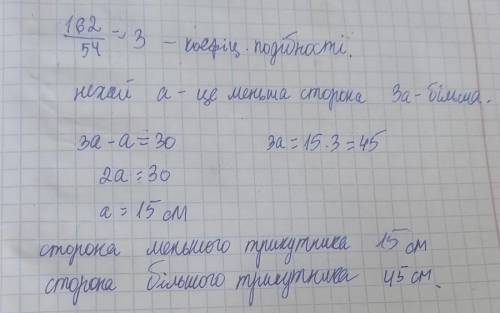 162/54 = 3 – коефіц. подібності.
нехай а – це меньша сторона 3а – більша.
3а – а = 30 3а = 15 · 3 = 45
2а = 30
а = 15 см
сторона меньшого трикутника 15 см
сторона більшого трикутника 45 см.